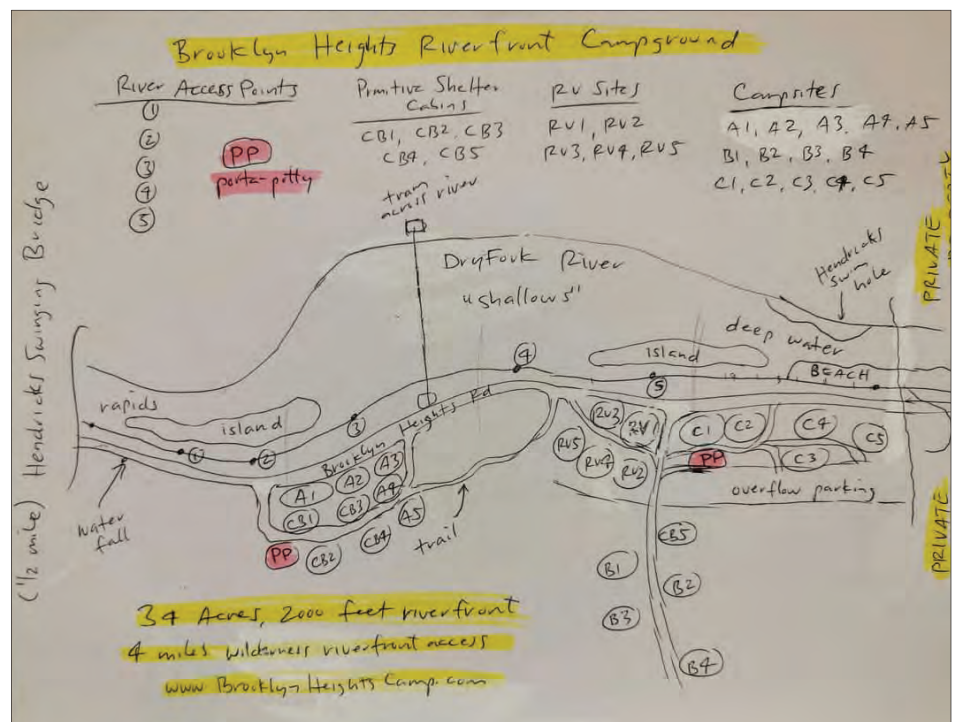 Brooklyn Heights Riverfront Campground
River Access Points
1
2
3
4
5
PP
porta-potty
Primitive Shelter
Cabins
CB1, CB2, CB3
CB4, CB5
RV Sites
RV1, RV2
RV3, RV4, RV5
Campsites
A1, A2, A3, A4, A5
B1, B2, B3, B4
C1, C2, C3, C4, C5
(1/2 mile) Hendricks Swinging Bridge
tram
across river
DryFork River
"shallows"
Hendricks
swim
hole
PRIVATE
deep water
island
BEACH
4
5
rapids
island
1
2
3
Brooklyn Heights Rd
A1
A2
A3
A4
A5
CB1
CB3
CB2
CB4
PP
trail
water
fall
RV3
RV5
RV4
RV2
C1
C2
C4
C5
C3
PP
overflow parking
PRIVATE
CB5
B1
B2
B3
B4
34 Acres, 2000 feet riverfront
4 miles wilderness riverfront access
www.BrooklynHeightsCamp.com